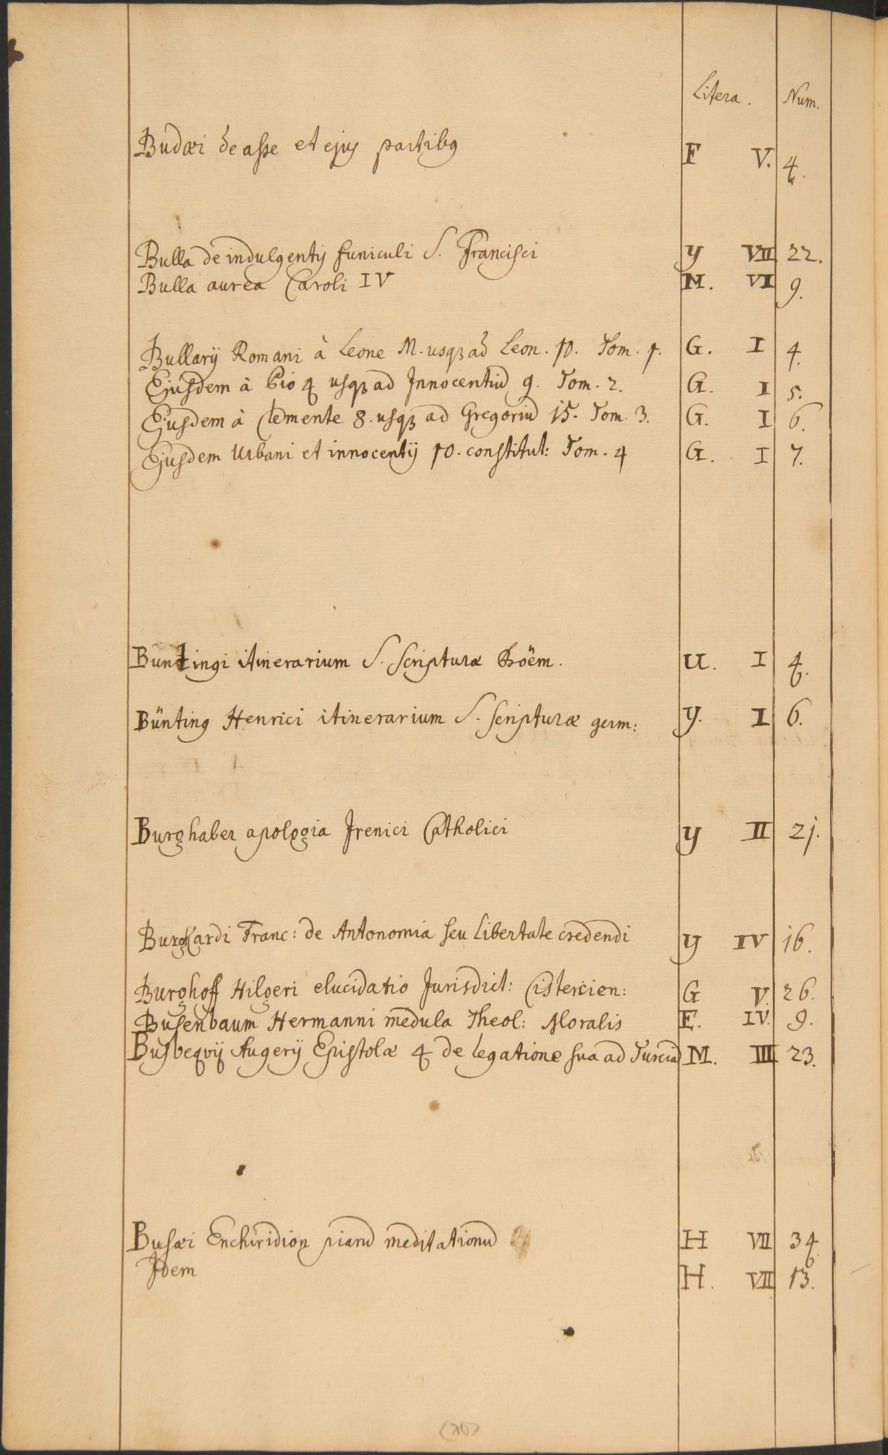 Litera. Num.
Budæi de asse et ejus partibus F V. 4.
Bulla de indulgentijs funiculi S. Francisci y VII 22.
Bulla aurea Caroli IV M. VI 9.
Bullarij Romani à Leone M. usq3 ad Leon. 10. Tom. 1. G. I 4.
Ejusdem à Pio 4 usq3 ad Innocentiū 9. Tom. 2. G. I 5.
Ejusdem à Clemente 8. usq3 ad Gregoriū 15. Tom. 3. G. I 6.
Ejusdem Urbani et innocentij 10. constitut: Tom. 4 G. I 7.
Buntingi itinerarium S. Scripturæ Boëm. U. I 4.
Bünting Henrici itinerarium S. Scripturæ germ: y. I 6.
Burghaber apologia Irenici Catholici y II 21.
Burgkardi Franc: de Antonomia seu Libertate credendi y IV 16.
Burghoff Hilgeri elucidatio Jurisdict: Cistercien: G V. 26.
Busenbaum Hermanni medula Theol: Moralis F. IV. 9.
Busbeqvij Augerij Epistolæ 4 de legatione sua ad Turciā M. III 23.
Busæi Enchiridion piarū meditationū H VII 34
Idem H. VII 13.